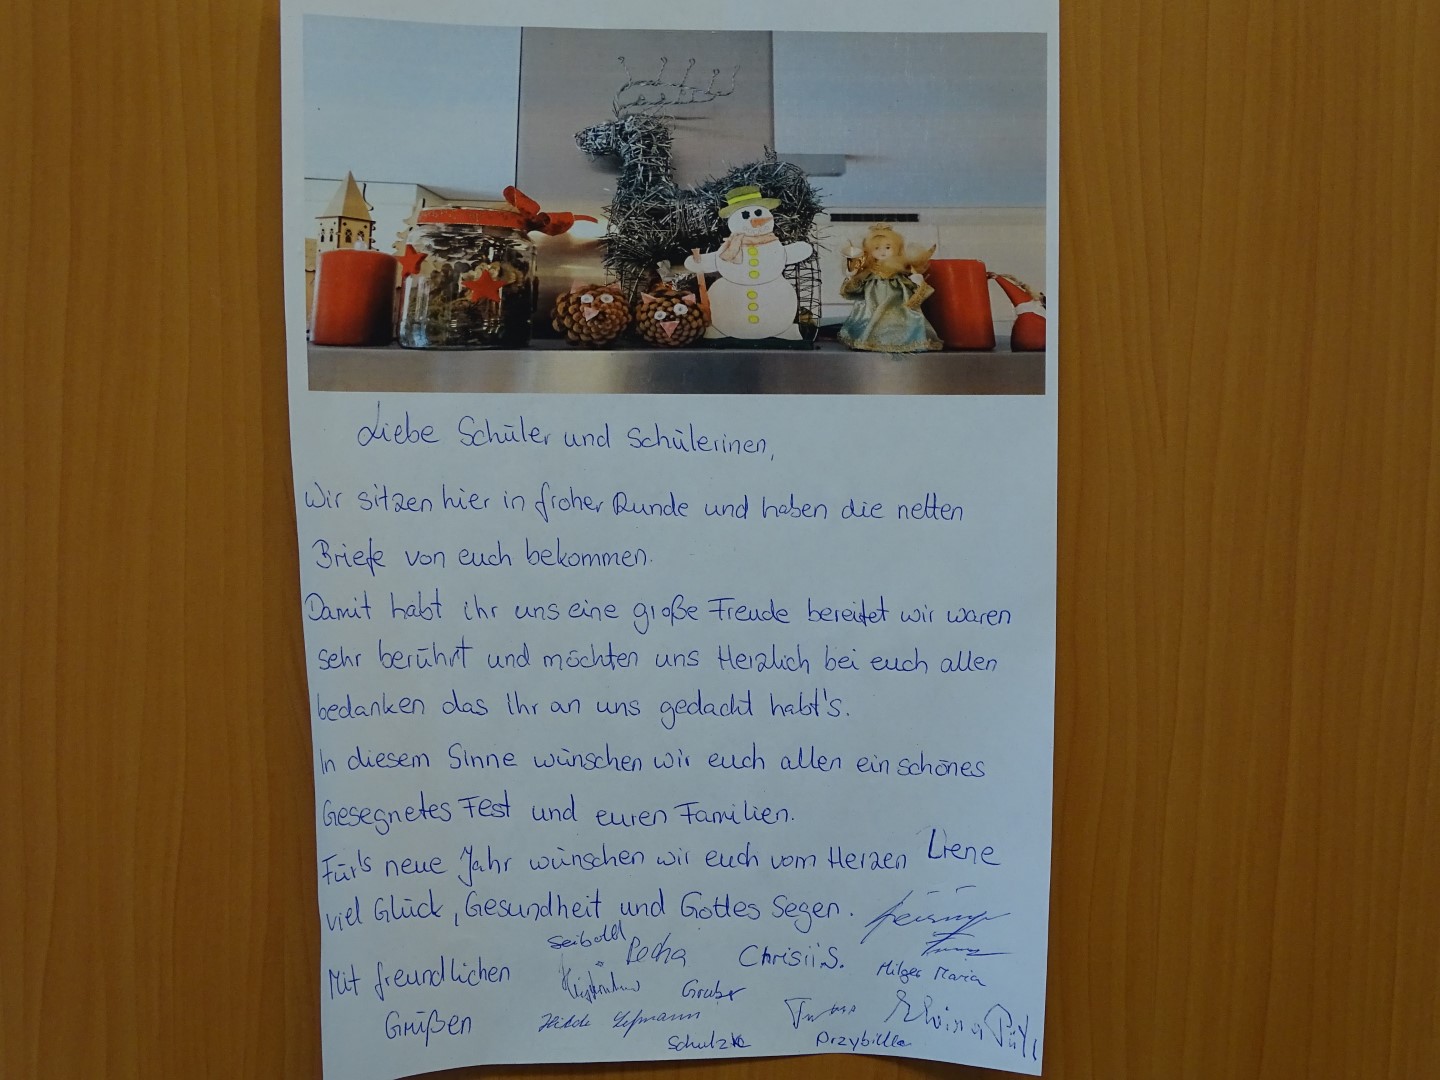 Liebe Schüler und Schülerinen,
Wir sitzen hier in froher Runde und haben die netten
Briefe von euch bekommen.
Damit habt ihr uns eine große Freude bereitet wir waren
sehr berührt und möchten uns Herzlich bei euch allen
bedanken das Ihr an uns gedacht habt's.
In diesem Sinne wünschen wir euch allen ein schönes
Gesegnetes Fest und euren Familien.
Für's neue Jahr wünschen wir euch vom Herzen Liene
viel Glück, Gesundheit und Gottes Segen.
Seibold Pocha Chrisii S. Hilges Maria
Mit freundlichen Gruber
Grüßen Hilde Lehmann
Schulzke Przybilla